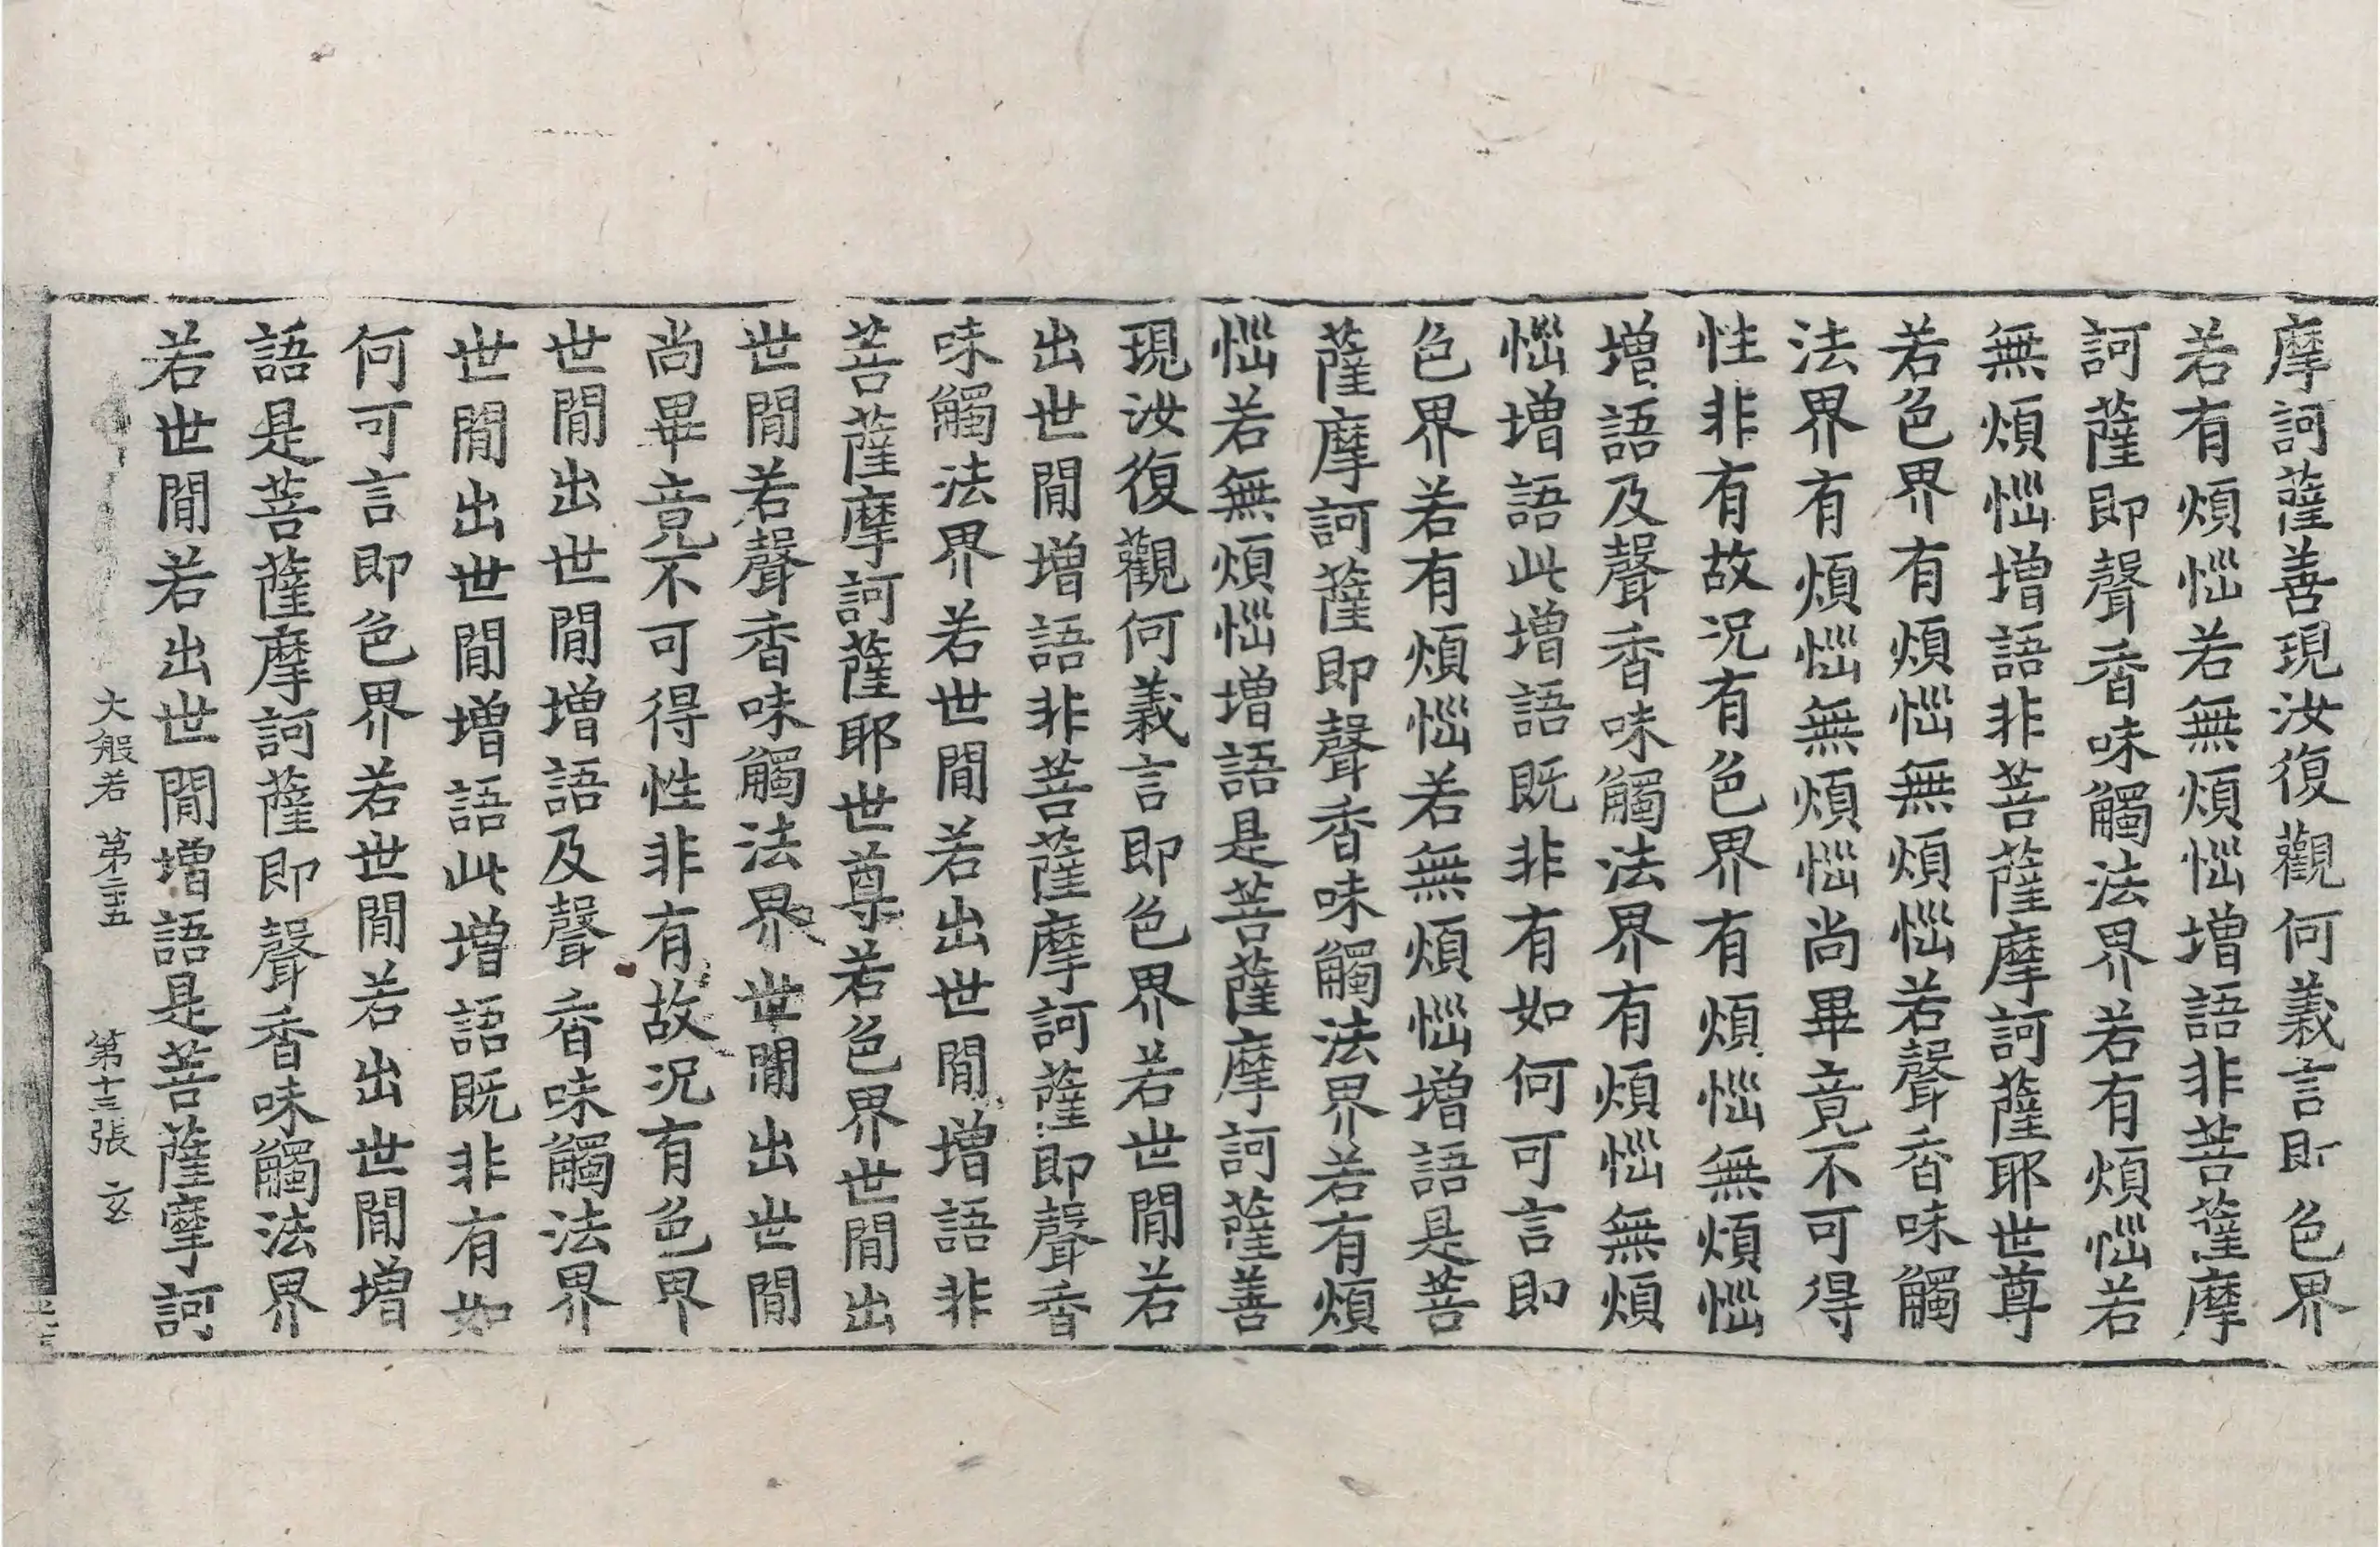 摩訶薩善現汝復觀何義言即色界
若有煩惱若無煩惱增語非菩薩摩
訶薩即聲香味觸法界若有煩惱若
無煩惱增語非菩薩摩訶薩耶世尊
若色界有煩惱無煩惱若聲香味觸
法界有煩惱無煩惱尚畢竟不可得
性非有故況有色界有煩惱無煩惱
增語及聲香味觸法界有煩惱無煩
惱增語此增語既非有如何可言即
色界若有煩惱若無煩惱增語是菩
薩摩訶薩即聲香味觸法界若有煩
惱若無煩惱增語是菩薩摩訶薩善
現汝復觀何義言即色界若世間若
出世間增語非菩薩摩訶薩即聲香
味觸法界若世間若出世間增語非
菩薩摩訶薩耶世尊若色界世間出
世間若聲香味觸法界世間出世間
尚畢竟不可得性非有故況有色界
世間出世間增語及聲香味觸法界
世間出世間增語此增語既非有如
何可言即色界若世間若出世間增
語是菩薩摩訶薩即聲香味觸法界
若世間若出世間增語是菩薩摩訶
大般若 第二十五 第十三張 玄